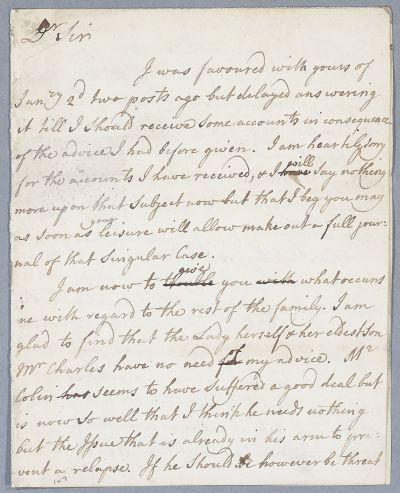 Dr Sir
I was favoured with yours of
Janry 2d two posts ago but delayed answering
it till I should receive some accounts in consequence
of the advice I had before given. I am heartily sorry
for the accounts I have received, & I will say nothing
more upon that subject now but that I beg you may
as soon as your leisure will allow make out a full jour-
nal of that singular Case.
I am now to give you what occurs
to me with regard to the rest of the family. I am
glad to find that the Lady herself & her eldest son
Mr Charles have no need of my advice. Mr
Colin seems to have suffered a good deal but
is now so well that I think he needs nothing
but the Issue that is already in his arm to pre-
vent a relapse. If he should however be threat